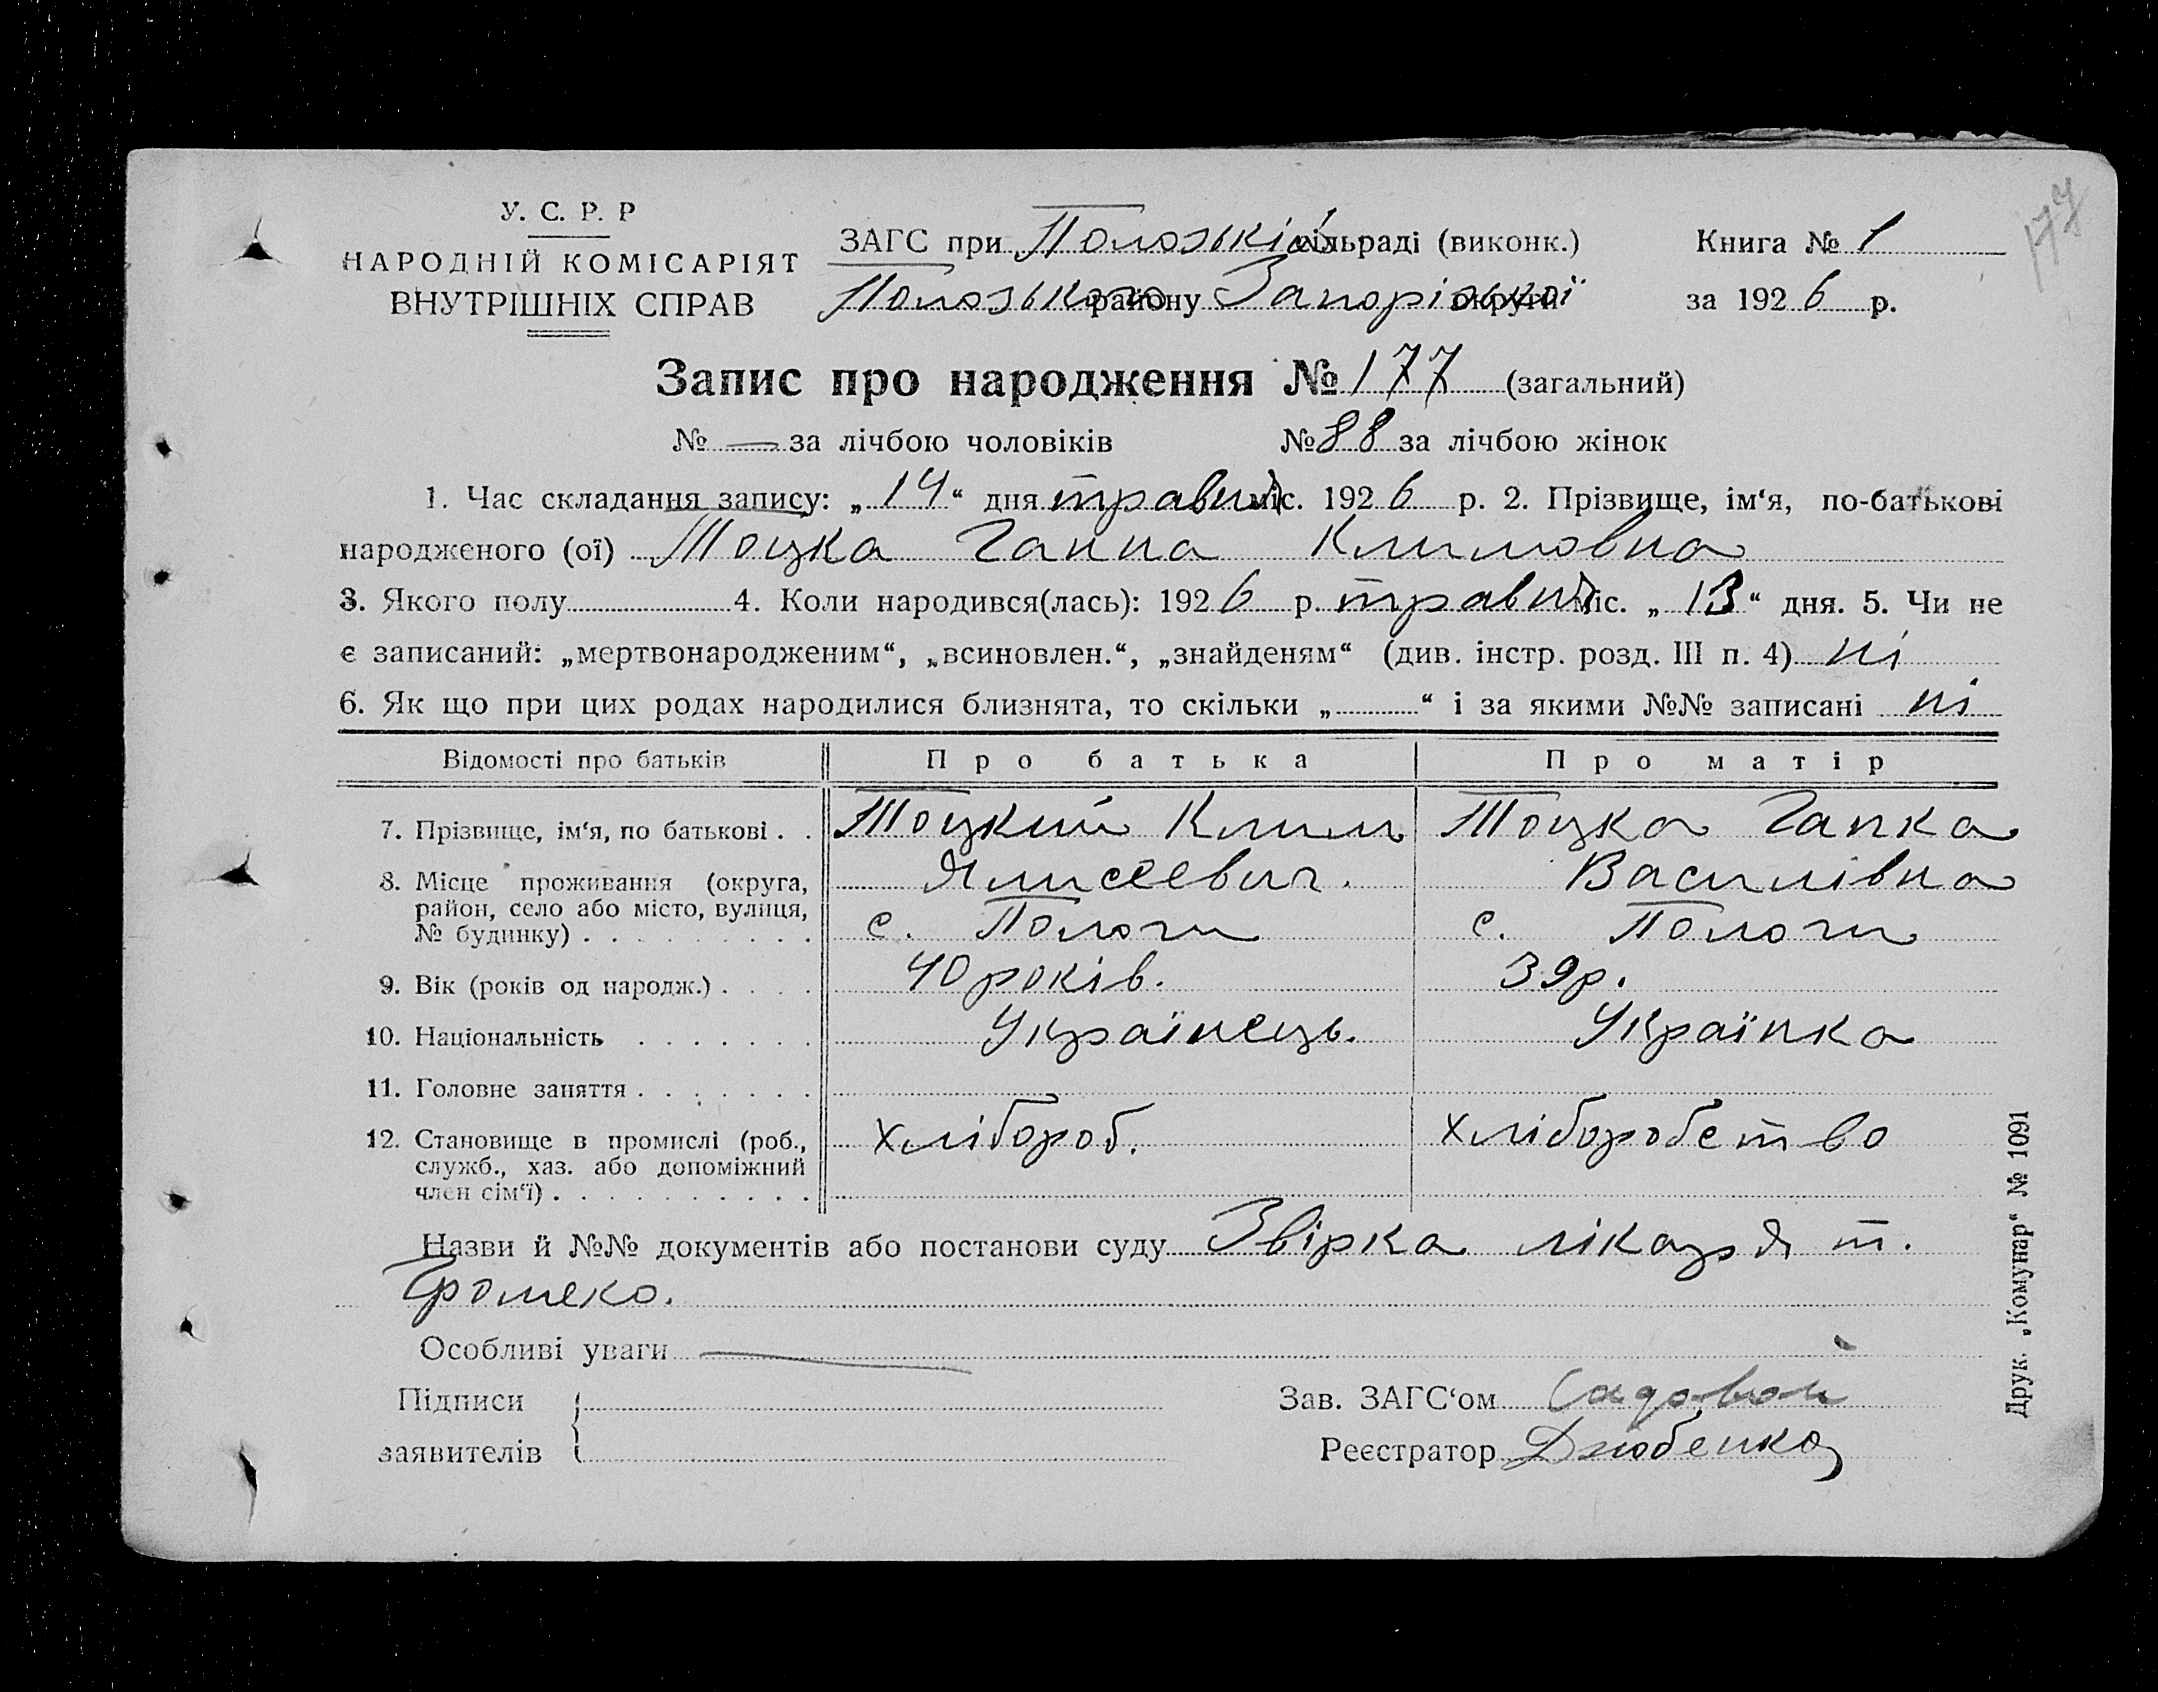 177
У. С. Р. Р
НАРОДНІЙ КОМІСАРІЯТ
ВНУТРІШНІХ СПРАВ
ЗАГС при Положській сільраді (виконк.)
Положського району Запорізької округи
Книга № 1
за 1926 р.
Запис про народження № 177 (загальний)
№ — за лічбою чоловіків № 88 за лічбою жінок
1. Час складання запису: „14“ дня травня міс. 1926 р. 2. Прізвище, ім‘я, по-батькові
народженого (ої) Тоцка Ганна Климовна
3. Якого полу 4. Коли народився(лась): 1926 р. травня міс. „13“ дня. 5. Чи не
є записаний: „мертвонародженим“, „всиновлен.“, „знайденям“ (див. інстр. розд. III п. 4) ні
6. Як що при цих родах народилися близнята, то скільки „ “ і за якими №№ записані ні
Відомості про батьків Про батька Про матір
7. Прізвище, ім‘я, по батькові . . Тоцкий Клим Тоцка Гапка
Ялисеевич. Василівна
8. Місце проживання (округа,
район, село або місто, вулиця,
№ будинку) . . . . . . . . . с. Пологи с. Пологи
9. Вік (років од народж.) . . . . 40 років. 39 р.
10. Національність . . . . . . . Українець. Українка
11. Головне заняття . . . . . . .
12. Становище в промислі (роб.,
служб., хаз. або допоміжний
член сім‘ї) . . . . . . . . . . хлібороб. хлiборобство
Назви й №№ документів або постанови суду Звірка лікаря т.
Громеко.
Особливі уваги —
Підписи
заявителів
Зав. ЗАГС‘ом Садовой
Реєстратор Дзюбенко
Друк. „Комунар“ № 1091